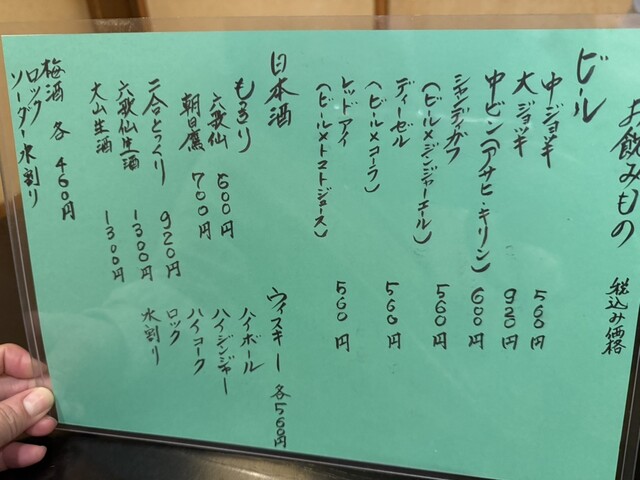 お飲みもの 税込み価格
ビール
中ジョッキ 560円
大ジョッキ 920円
中ビン(アサヒ・キリン) 600円
シャンディガフ
(ビール×ジンジャーエール) 560円
ディーゼル
(ビール×コーラ) 560円
レッドアイ
(ビール×トマトジュース) 560円
日本酒
もっきり
六歌仙 600円
朝日鷹 700円
二合とっくり 920円
六歌仙生酒 1300円
大山生酒 1300円
ウィスキー 各560円
ハイボール
ハイジンジャー
ハイコーク
ロック
水割り
梅酒 各460円
ロック
ソーダー水割り